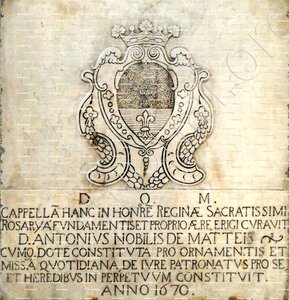 D. O. M.
CAPPELLĀ HANC IN HONRĒ REGINÆ SACRATISSIMI
ROSARY A FUNDAMENTIS ET PROPRIO ÆRE ERIGI CURAVIT
D. ANTONIVS NOBILIS DE MATTEIS
CVMQ. DOTE CONSTITVTA PRO ORNAMENTIS ET
MISSA QVOTIDIANA DE IVRE PATRONATVS PRO SE
ET HEREDIBVS IN PERPETVVM CONSTITVIT.
ANNO 1670.